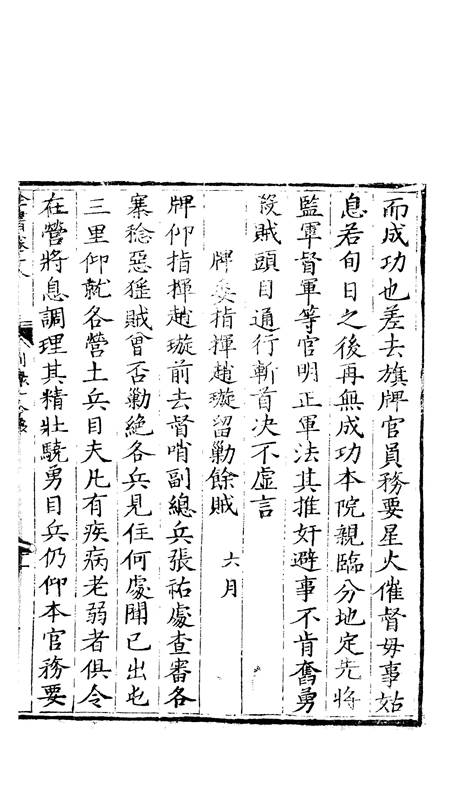 而成功也差去旗牌官員務要星火催督毋事姑
息若旬日之後再無成功本院親臨分地定先將
監軍督軍等官明正軍法其推奸避事不肯奮勇
殺賊頭目通行斬首決不虛言
牌委指揮趙璇留勦餘賊 六月
牌仰指揮趙璇前去督哨副總兵張祐處查審各
寨稔惡猺賊曾否勦絶各兵見住何處聞已出屯
三里仰就各營土兵目夫凡有疾病老弱者俱令
在營將息調理其精壯驍勇目兵仍仰本官務要